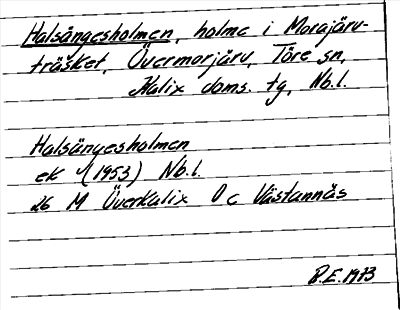 Halsängesholmen, holme i Morajärv-
träsket, Övermorjärv, Töre sn,
Kalix doms. tg, Nb.l.
Halsängesholmen
ek (1953) Nb.l.
26 M Överkalix O c Västannäs
B.E. 1973